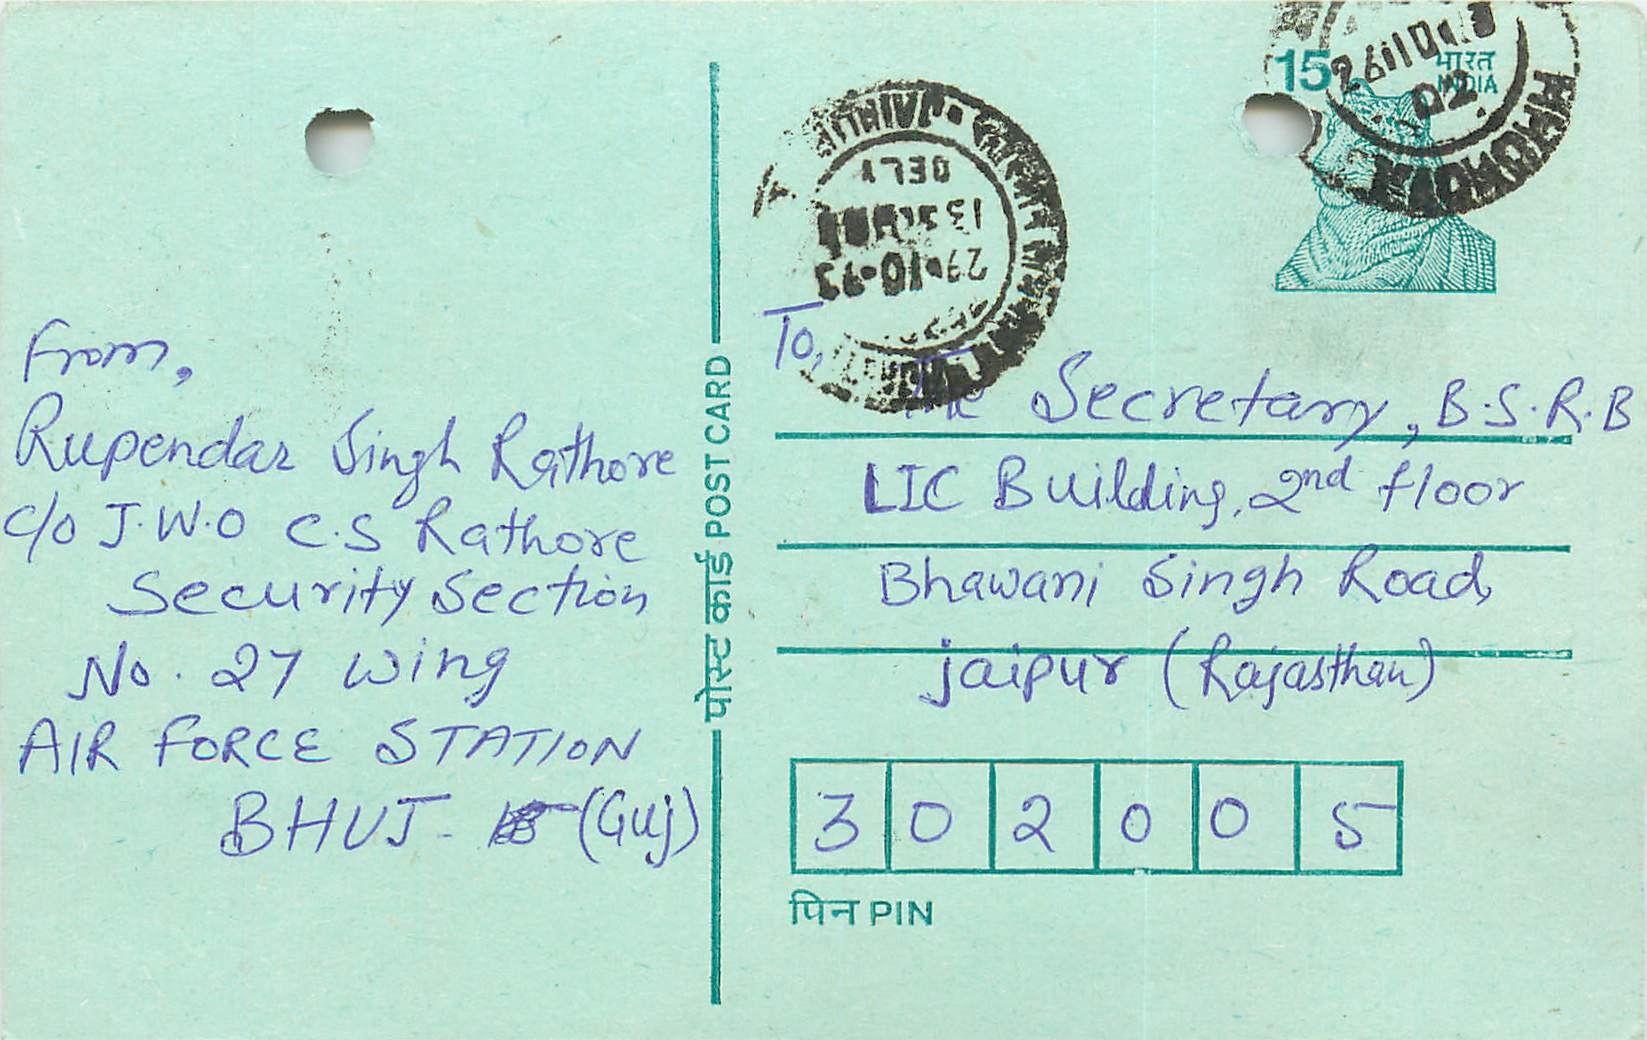 From,
Rupendar Singh Rathore
C/o J.W.O C.S Rathore
Security Section
No. 27 Wing
AIR FORCE STATION
BHUJ - (Guj)
पोस्ट कार्ड POST CARD
15
भारत
INDIA
DELY
29.10.93
To,
The Secretary, B.S.R.B
LIC Building, 2nd floor
Bhawani Singh Road,
Jaipur (Rajasthan)
3 0 2 0 0 5
पिन PIN